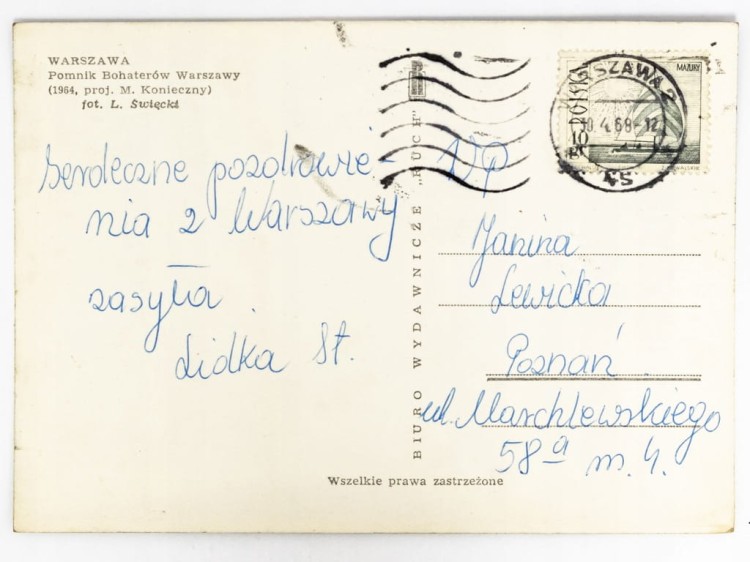 WARSZAWA
Pomnik Bohaterów Warszawy
(1964, proj. M. Konieczny)
fot. L. Święcki
Serdeczne pozdrowie-
nia z Warszawy
zasyła
Lidka St.
BIURO WYDAWNICZE „RUCH"
MAZURY
WARSZAWA 2
0.4.68-12
45
WP
Janina
Lewicka
Poznań
ul. Marchlewskiego
58a m. 4.
Wszelkie prawa zastrzeżone